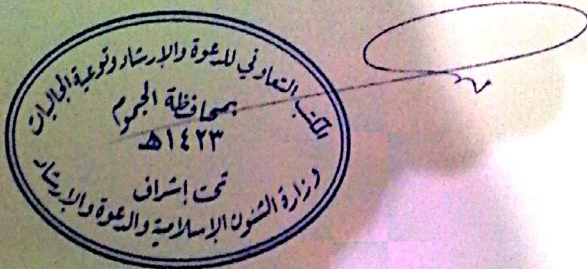 المكتب التعاوني للدعوة والإرشاد وتوعية الجاليات
بمحافظة الجموم
١٤٢٣هـ
تحت إشراف
وزارة الشئون الإسلامية والدعوة والإرشاد